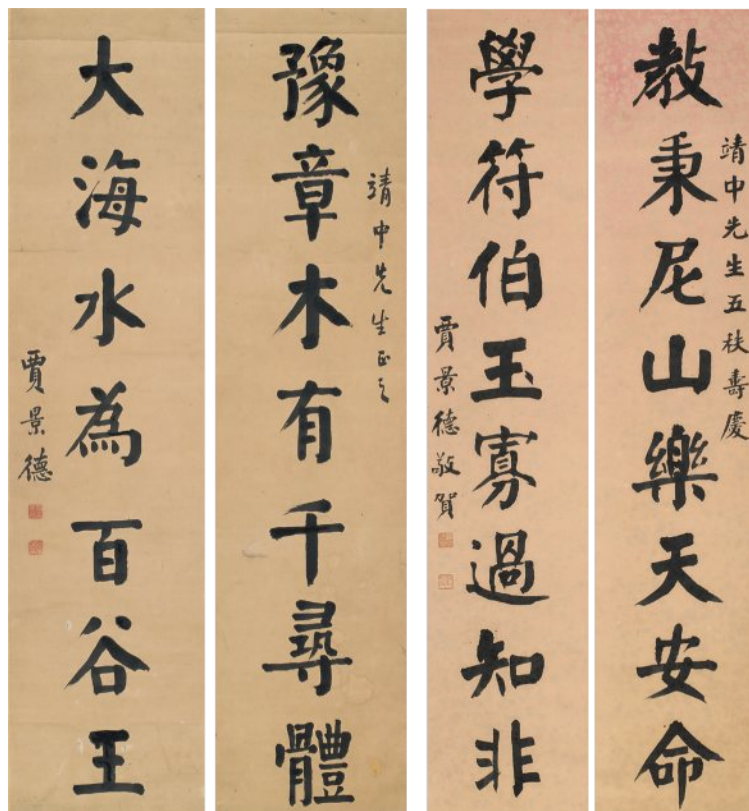 教秉尼山樂天安命
靖中先生五秩壽慶
學符伯玉寡過知非
賈景德敬賀
豫章木有千尋體
靖中先生正之
大海水為百谷王
賈景德